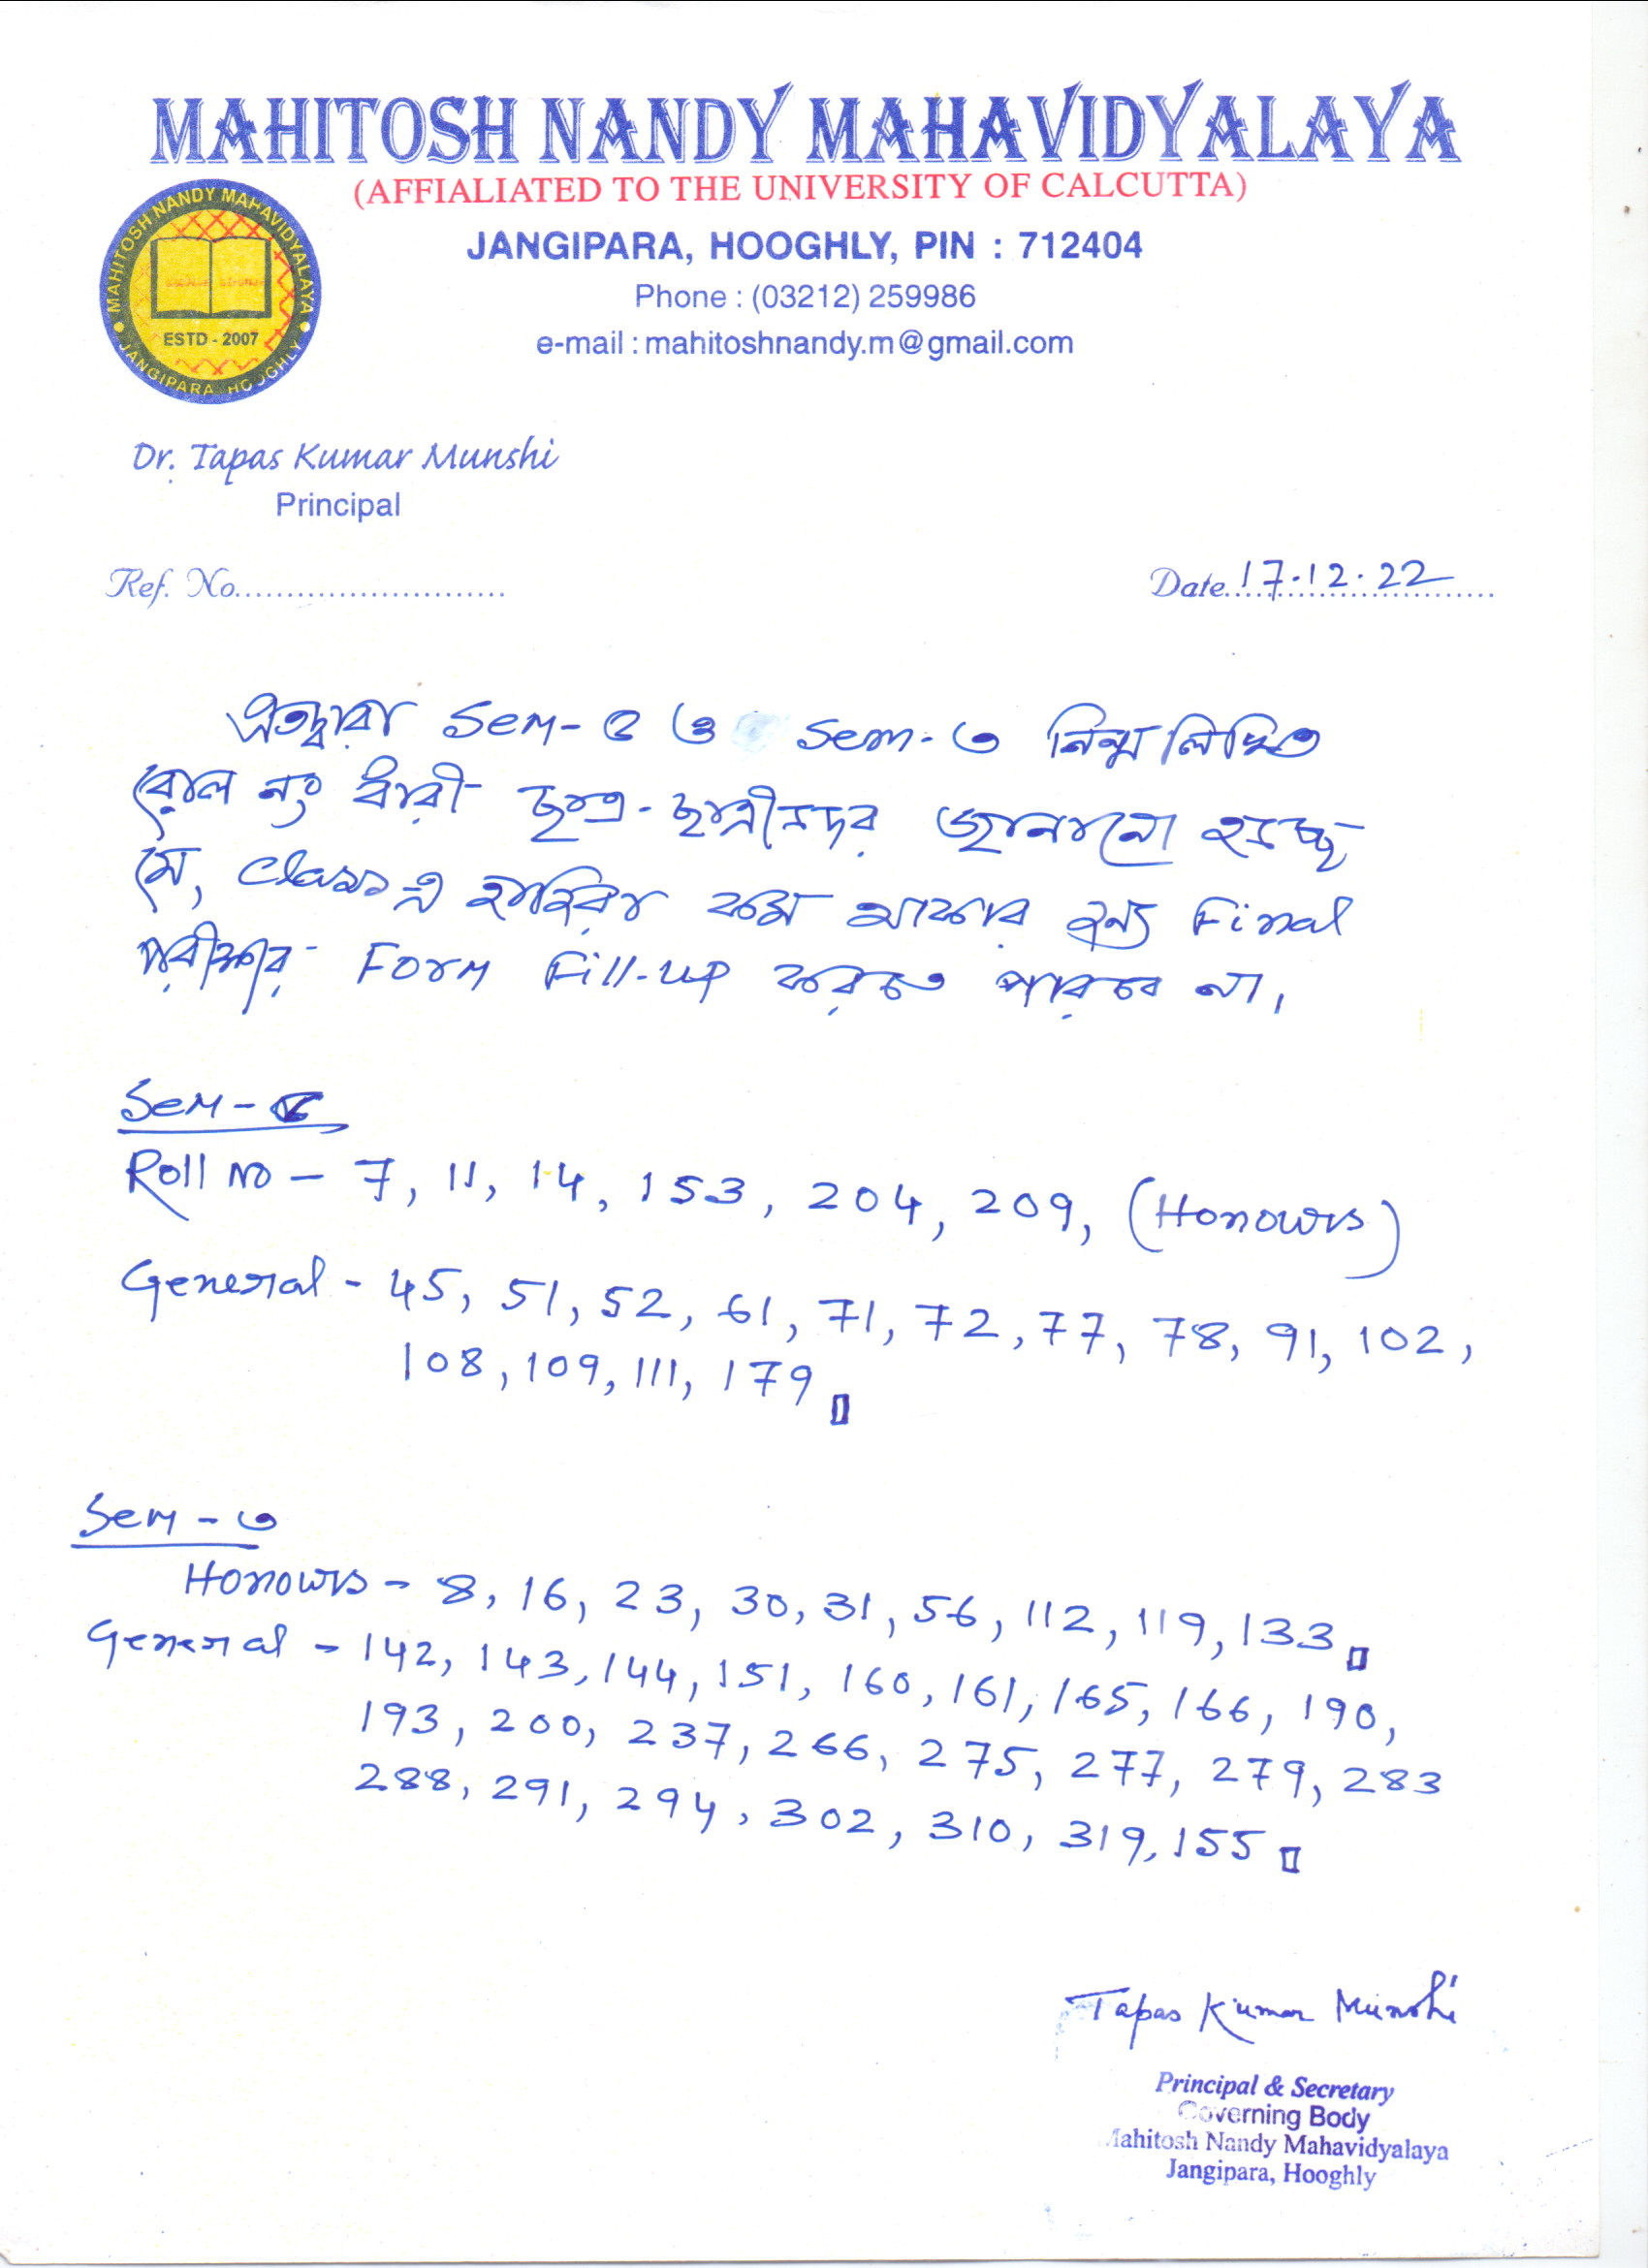 MAHITOSH NANDY MAHAVIDYALAYA
(AFFIALIATED TO THE UNIVERSITY OF CALCUTTA)
JANGIPARA, HOOGHLY, PIN : 712404
Phone : (03212) 259986
e-mail : mahitoshnandy.m@gmail.com
MAHITOSH NANDY MAHAVIDYALAYA
ESTD - 2007
JANGIPARA HOOGHLY
Dr. Tapas Kumar Munshi
Principal
Ref. No..........................
Date 17.12.22
এতদ্বারা Sem-৫ ও Sem-৩ নিম্নলিখিত
রোল নং ধারী ছাত্র-ছাত্রীদের জানানো হচ্ছে
যে, Class এ হাজিরা কম থাকার জন্য Final
পরীক্ষার Form Fill-up করতে পারবে না।
Sem-৫
Roll No - 7, 11, 14, 153, 204, 209, (Honours)
General - 45, 51, 52, 61, 71, 72, 77, 78, 91, 102,
108, 109, 111, 179
Sem-৩
Honours - 8, 16, 23, 30, 31, 56, 112, 119, 133
General - 142, 143, 144, 151, 160, 161, 165, 166, 190,
193, 200, 237, 266, 275, 277, 279, 283
288, 291, 294, 302, 310, 319, 155
Tapas Kumar Munshi
Principal & Secretary
Governing Body
Mahitosh Nandy Mahavidyalaya
Jangipara, Hooghly